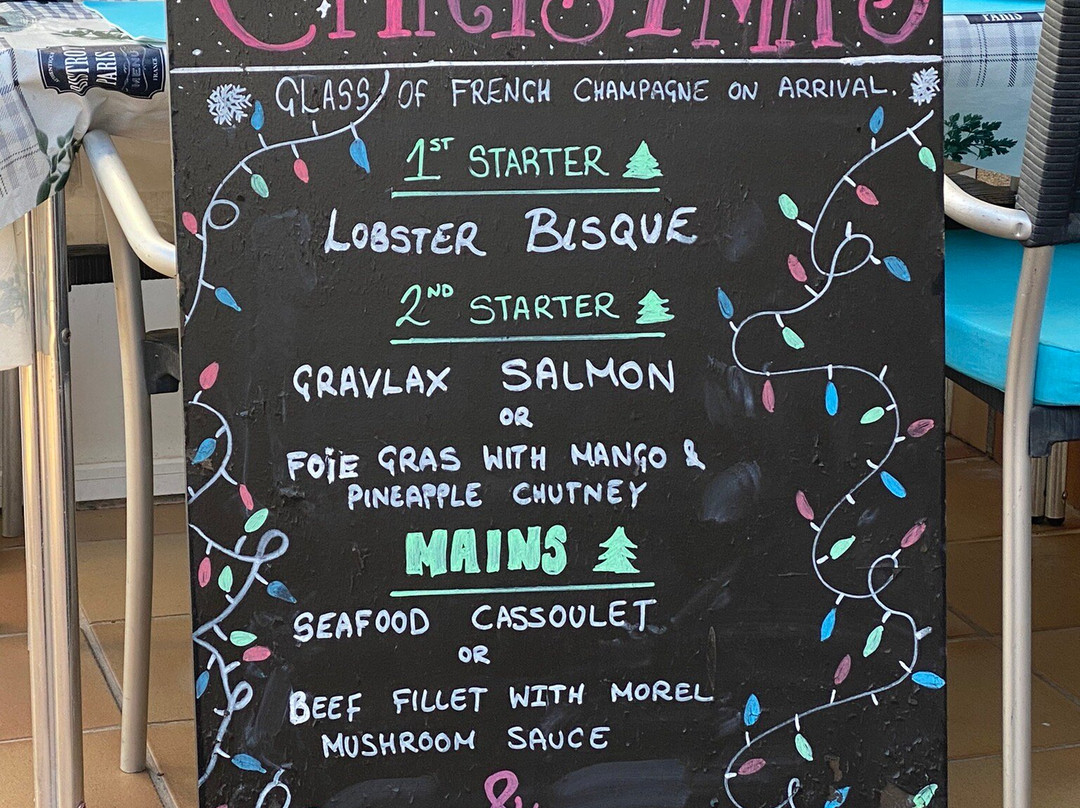 CHRISTMAS
GLASS OF FRENCH CHAMPAGNE ON ARRIVAL.
1ST STARTER
LOBSTER BISQUE
2ND STARTER
GRAVLAX SALMON
OR
FOIE GRAS WITH MANGO &
PINEAPPLE CHUTNEY
MAINS
SEAFOOD CASSOULET
OR
BEEF FILLET WITH MOREL
MUSHROOM SAUCE
&
PARIS
MENU
PARIS